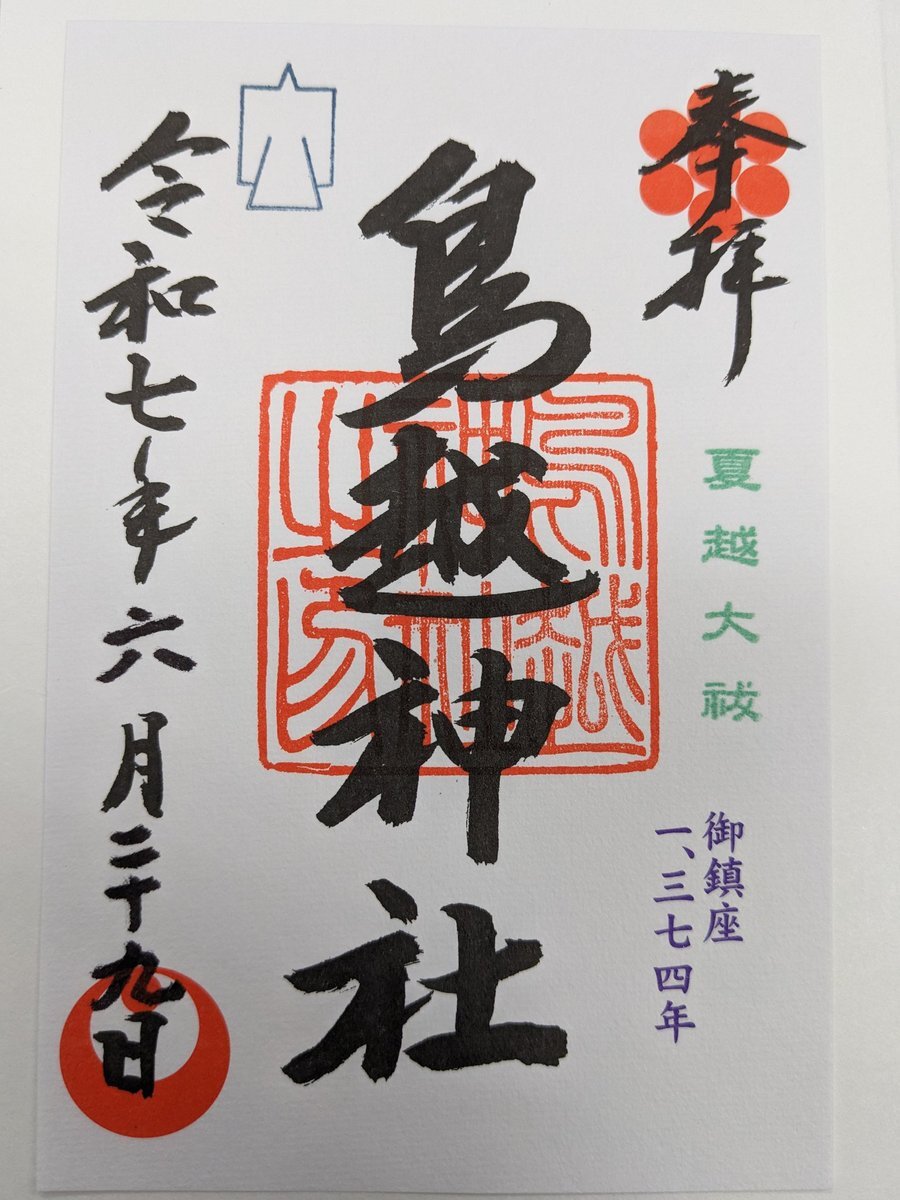 奉拝
夏越大祓
御鎮座
一、三七四年
鳥越神社
鳥越
神社
之印
令和七年六月二十九日